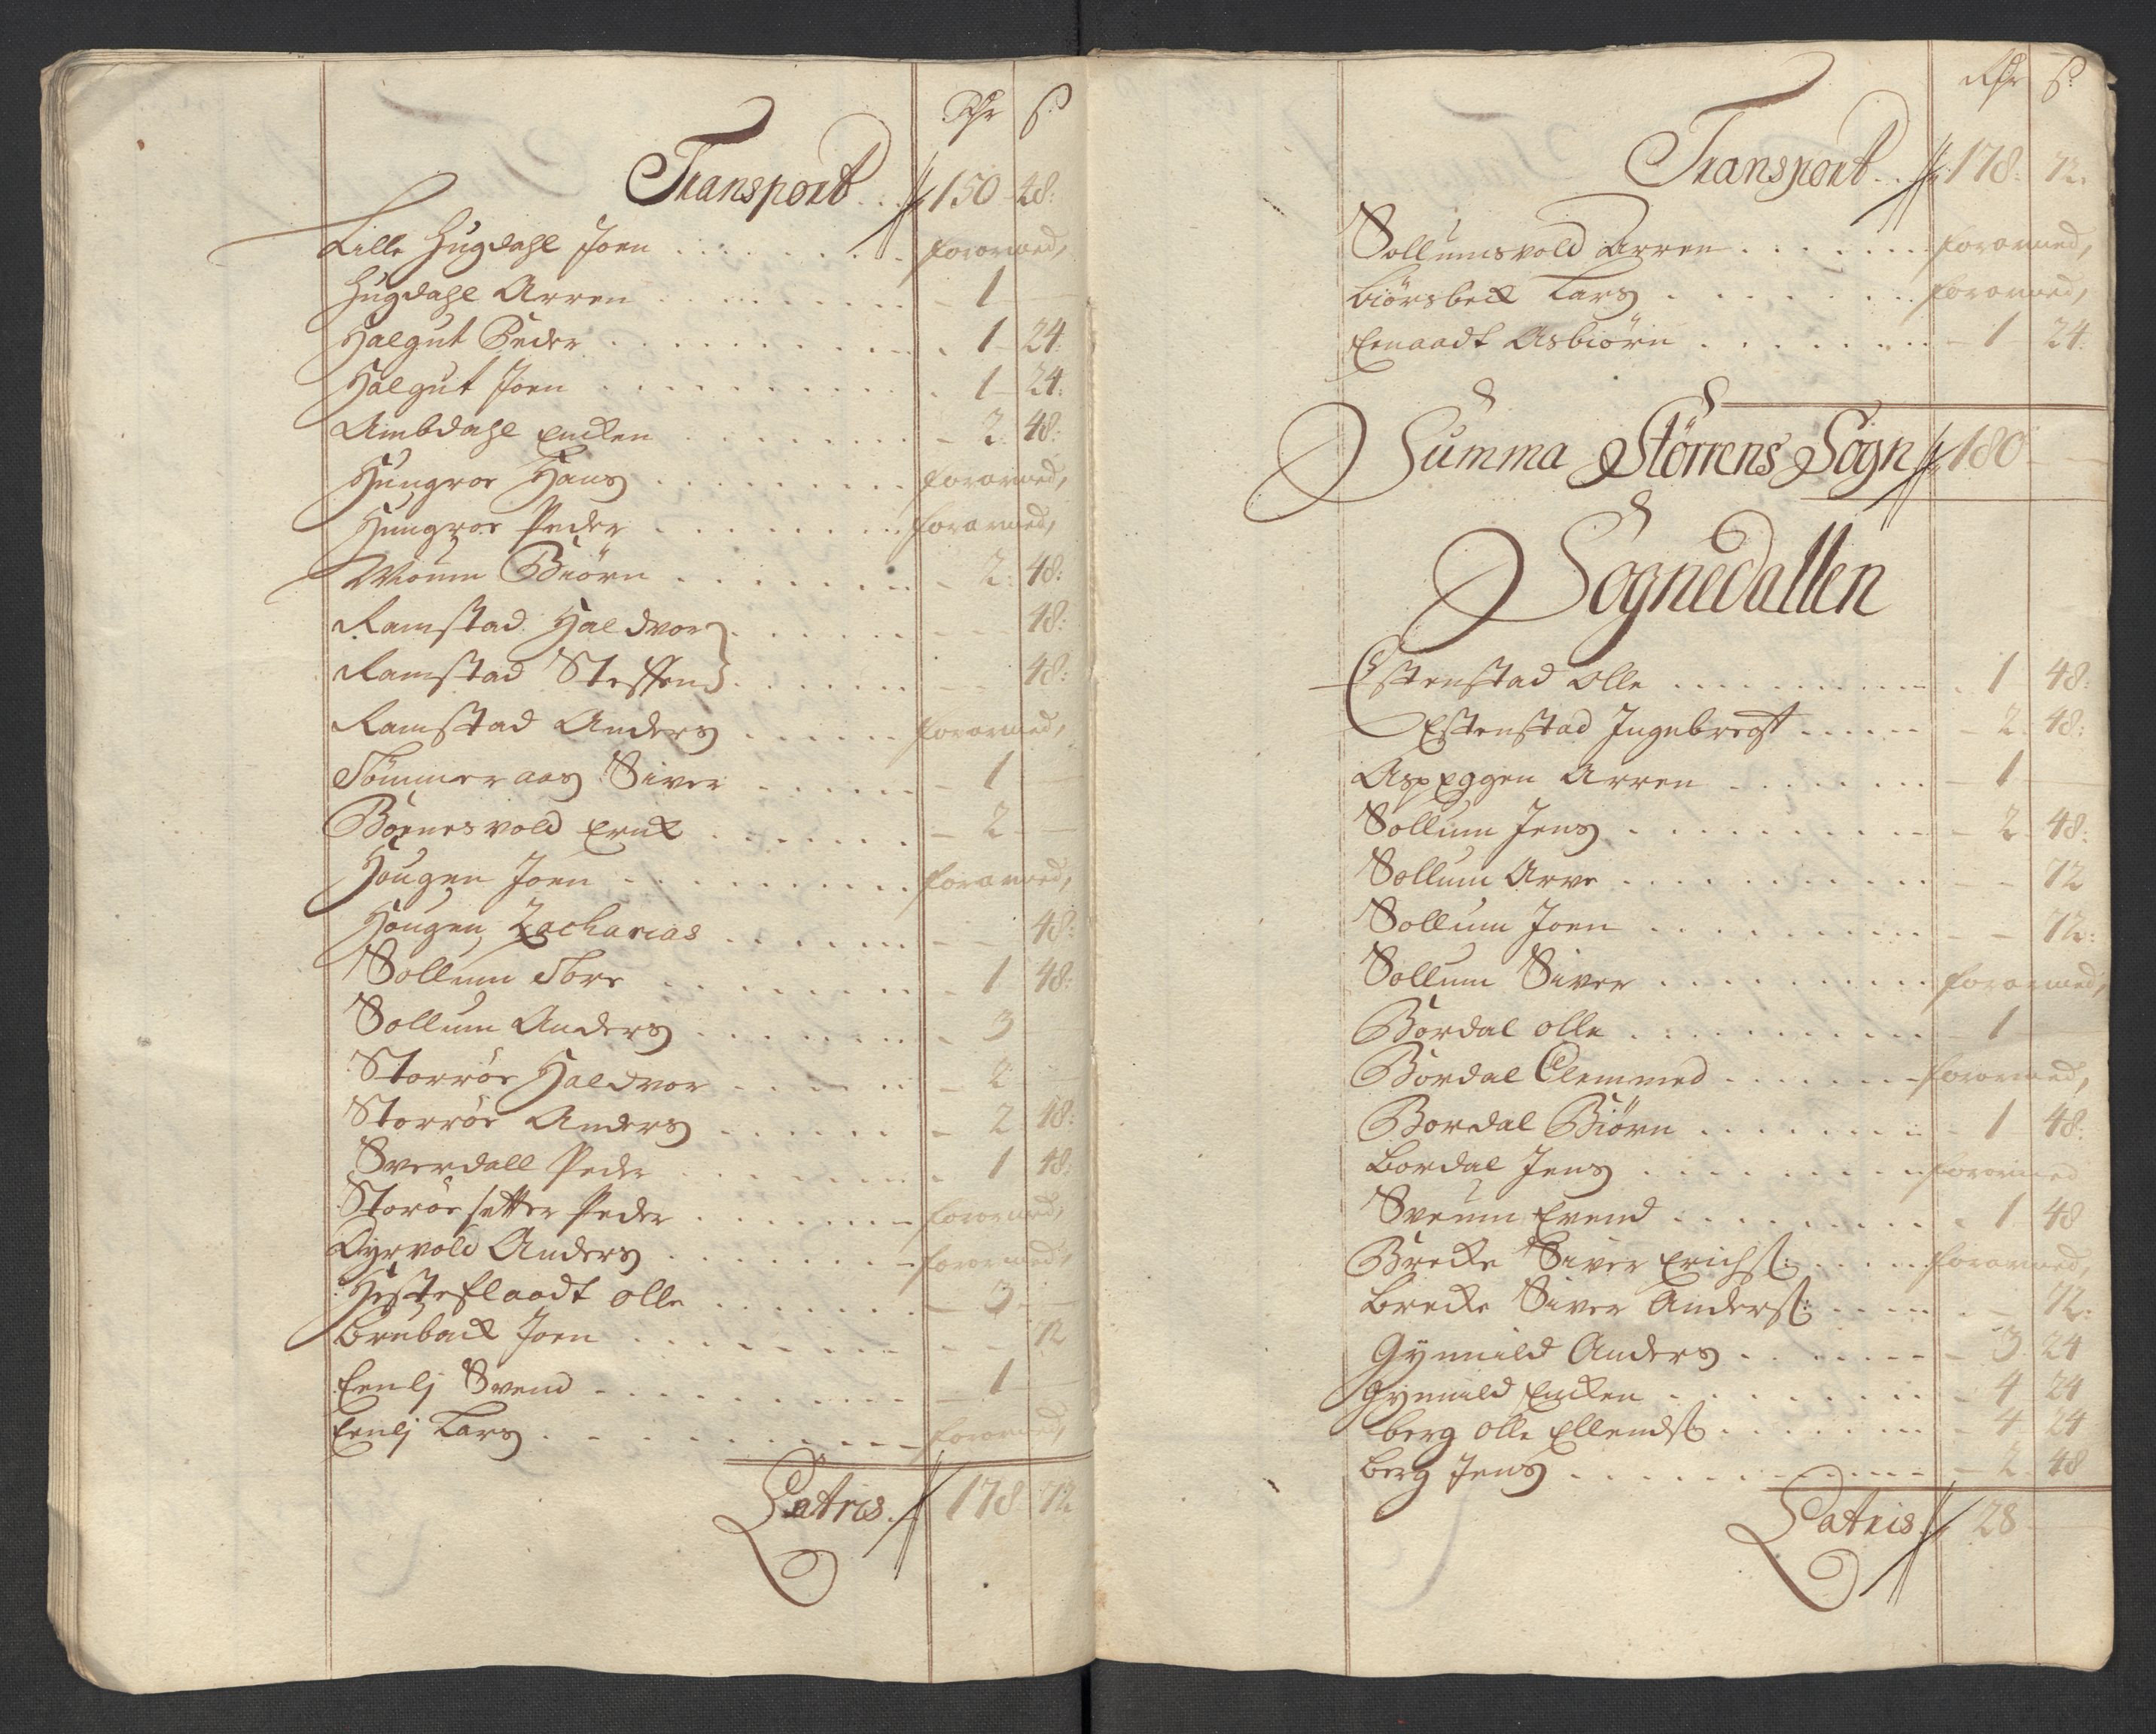 Rdr ß
Transport . . 150 48:
Lille Hugdahl Joen . . . . . . . forarmed,
Hugdahl Arren . . . . . . . 1 -
Halgut Peder . . . . . . . 1 24:
Halgut Joen . . . . . . . 1 24:
Ambdahl Encken . . . . . . . 2: 48:
Hungroe Hans . . . . . . . forarmed,
Hungroe Peder . . . . . . . forarmed,
Moum Biörn . . . . . . . 2: 48:
Ramstad Haldvor . . . . . . . 48:
Ramstad Steffen . . . . . . . 48:
Ramstad Anders . . . . . . . forarmed,
Tömmeraas Siver . . . . . . . 1 -
Börnesvold Erick . . . . . . . 2 -
Hougen Joen . . . . . . . forarmed,
Hougen Zacharias . . . . . . . 48:
Sollum Tore . . . . . . . 1 48:
Sollum Anders . . . . . . . 3
Storröe Haldvor . . . . . . . 2
Storröe Anders . . . . . . . 2 48:
Sverdall Peder . . . . . . . 1 48:
Storöe setter Peder . . . . . . . forarmed,
Dyrvold Anders . . . . . . . forarmed,
Hesteflaadt olle . . . . . . . 3 -
Bruback Joen . . . . . . . 72
Eenlj Svend . . . . . . . 1 -
Eenlj Lars . . . . . . . forarmed,
Latris . 178 72
Rdr ß
Transport . . 178: 72.
Sollumsvold Arren . . . . . . . forarmed,
Biörsbeck Lars . . . . . . . forarmed,
Eenaadt Asbiörn . . . . . . . 1 24:
Summa Störrens Sogn 180 -
Sognedallen
Estenstad Olle . . . . . . . 1 48:
Estenstad Ingebregt . . . . . . . 2 48:
Aspeggen Arren . . . . . . . 1 -
Sollum Jens . . . . . . . 2 48:
Sollum Arve . . . . . . . 72
Sollum Joen . . . . . . . 72:
Sollum Siver . . . . . . . forarmed,
Bordal olle . . . . . . . 1 -
Bordal Clemmed . . . . . . . forarmed,
Bordal Biörn . . . . . . . 1 48:
Bordal Jens . . . . . . . forarmed
Sveum Evend . . . . . . . 1 48
Brecke Siver Erichs: . . . . . forarmed,
Brecke Siver Anders: . . . . . 72:
Gynnild Anders . . . . . . . 3 24
Gynnild Encken . . . . . . . 4 24
berg olle Ellends: . . . . . . . 4 24
berg Jens . . . . . . . 2 48
Latris . 28 -